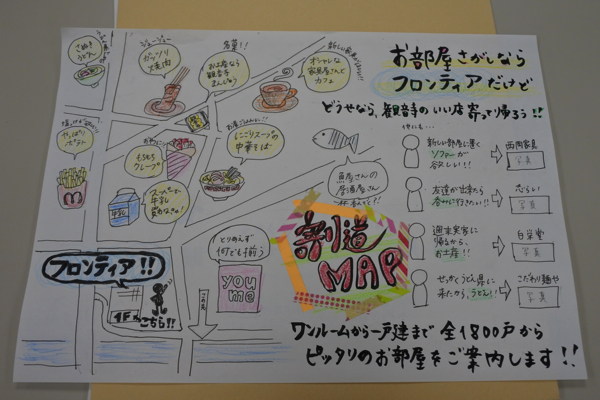 お部屋さがしなら
フロンティアだけど
どうせなら、観音寺のいい店寄って帰ろう!!
さぬき
うどん
ジュージュー
ガッツリ
焼肉
名菓!!
お土産なら
観音寺
まんじゅう
オシャレな
家具屋さんと
カフェ
やっぱり
ポテト
もちもち
クレープ
牛乳
にごりスープの
中華そば
魚屋さんの
居酒屋さん
とりあえず
何でも揃う
you
me
割道
MAP
フロンティア!!
1F
こちら!!
新しい部屋に置く
ソファーが
欲しい!!
西岡家具
写真
友達が出来たら
呑みに行きたい!!
むらい
写真
週末実家に
帰るから、
お土産!!
白栄堂
写真
せっかくうどん県に
来たから、うどん!!
こだわり麺や
写真
ワンルームから一戸建まで 全1800戸から
ピッタリのお部屋をご案内します!!